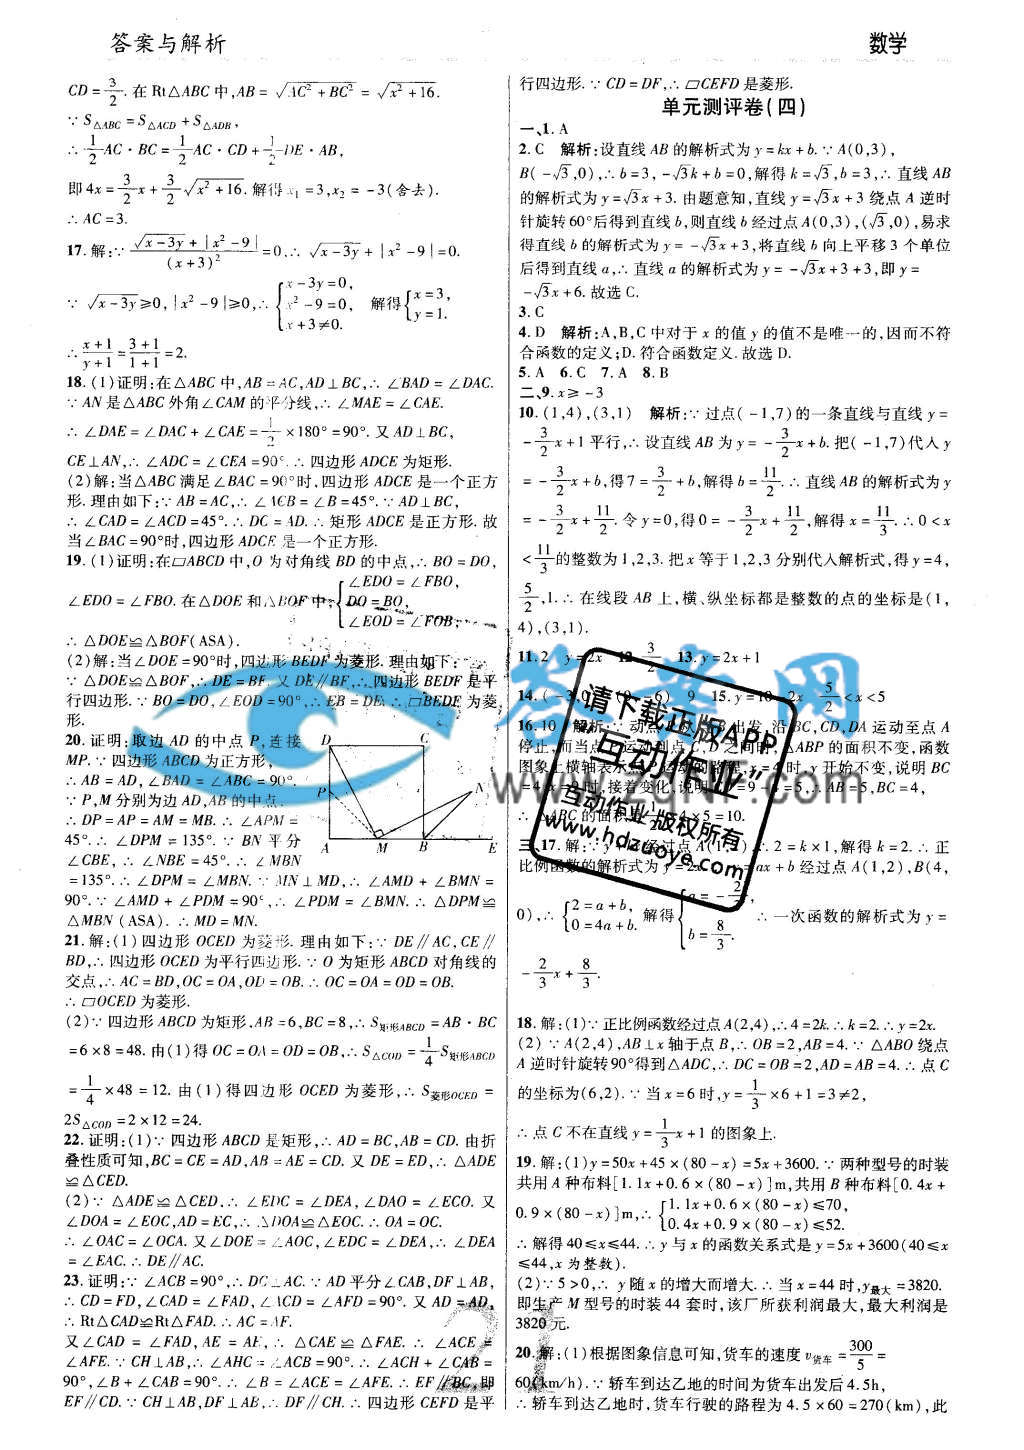 答案与解析
数学
CD = 3/2. 在 Rt△ABC 中,AB = √(AC² + BC²) = √(x² + 16).
∵ S△ABC = S△ACD + S△ADB,
∴ 1/2 AC · BC = 1/2 AC · CD + 1/2 DE · AB,
即 4x = 3/2 x + 3/2 √(x² + 16). 解得 x₁ = 3, x₂ = -3(舍去).
∴ AC = 3.
17. 解:∵ (√(x - 3y) + |x² - 9|)/(x + 3)² = 0,∴ √(x - 3y) + |x² - 9| = 0.
∵ √(x - 3y) ≥ 0, |x² - 9| ≥ 0,∴ { x - 3y = 0, x² - 9 = 0, x + 3 ≠ 0. 解得 { x = 3, y = 1.
∴ (x + 1)/(y + 1) = (3 + 1)/(1 + 1) = 2.
18. (1)证明:在△ABC 中,AB = AC,AD⊥BC,∴ ∠BAD = ∠DAC.
∵ AN 是△ABC 外角∠CAM 的平分线,∴ ∠MAE = ∠CAE.
∴ ∠DAE = ∠DAC + ∠CAE = 1/2 × 180° = 90°. 又 AD⊥BC,
CE⊥AN,∴ ∠ADC = ∠CEA = 90°. ∴ 四边形 ADCE 为矩形.
(2)解:当△ABC 满足∠BAC = 90°时,四边形 ADCE 是一个正方
形. 理由如下:∵ AB = AC,∴ ∠ACB = ∠B = 45°. ∵ AD⊥BC,
∴ ∠CAD = ∠ACD = 45°. ∴ DC = AD. ∴ 矩形 ADCE 是正方形. 故
当∠BAC = 90°时,四边形 ADCE 是一个正方形.
19. (1)证明:在▱ABCD 中,O 为对角线 BD 的中点,∴ BO = DO,
∠EDO = ∠FBO. 在△DOE 和△BOF 中, { ∠EDO = ∠FBO, DO = BO, ∠EOD = ∠FOB,
∴ △DOE≌△BOF(ASA).
(2)解:当∠DOE = 90°时,四边形 BEDF 为菱形. 理由如下:
∵ △DOE≌△BOF,∴ DE = BF. 又 DE∥BF,∴ 四边形 BEDF 是平
行四边形. ∵ BO = DO,∠EOD = 90°,∴ EB = DE. ∴ ▱BEDF 为菱
形.
20. 证明:取边 AD 的中点 P,连接
MP. ∵ 四边形 ABCD 为正方形,
∴ AB = AD,∠BAD = ∠ABC = 90°.
∵ P,M 分别为边 AD,AB 的中点,
∴ DP = AP = AM = MB. ∴ ∠APM =
45°. ∴ ∠DPM = 135°. ∵ BN 平分
∠CBE,∴ ∠NBE = 45°. ∴ ∠MBN
= 135°. ∴ ∠DPM = ∠MBN. ∵ MN⊥MD,∴ ∠AMD + ∠BMN =
90°. ∵ ∠AMD + ∠PDM = 90°,∴ ∠PDM = ∠BMN. ∴ △DPM≌
△MBN (ASA). ∴ MD = MN.
D C P N A M B E
21. 解:(1) 四边形 OCED 为菱形. 理由如下:∵ DE∥AC,CE∥
BD,∴ 四边形 OCED 为平行四边形. ∵ O 为矩形 ABCD 对角线的
交点,∴ AC = BD,OC = OA,OD = OB. ∴ OC = OA = OD = OB.
∴ ▱OCED 为菱形.
(2)∵ 四边形 ABCD 为矩形,AB = 6,BC = 8,∴ S矩形ABCD = AB · BC
= 6 × 8 = 48. 由(1)得 OC = OA = OD = OB,∴ S△COD = 1/4 S矩形ABCD
= 1/4 × 48 = 12. 由(1)得四边形 OCED 为菱形,∴ S菱形OCED =
2S△COD = 2 × 12 = 24.
22. 证明:(1)∵ 四边形 ABCD 是矩形,∴ AD = BC,AB = CD. 由折
叠性质可知,BC = CE = AD,AB = AE = CD. 又 DE = ED,∴ △ADE
≌△CED.
(2)∵ △ADE≌△CED,∴ ∠EDC = ∠DEA,∠DAO = ∠ECO. 又
∠DOA = ∠EOC,AD = EC,∴ △DOA≌△EOC. ∴ OA = OC.
∴ ∠OAC = ∠OCA. 又∠DOE = ∠AOC,∠EDC = ∠DEA,∴ ∠DEA
= ∠EAC. ∴ DE∥AC.
23. 证明:∵ ∠ACB = 90°,∴ DC⊥AC. ∵ AD 平分∠CAB,DF⊥AB,
∴ CD = FD,∠CAD = ∠FAD,∠ACD = ∠AFD = 90°. 又 AD = AD,
∴ Rt△CAD≌Rt△FAD. ∴ AC = AF.
又∠CAD = ∠FAD, AE = AE, ∴ △CAE ≌ △FAE. ∴ ∠ACE =
∠AFE. ∵ CH⊥AB,∴ ∠AHC = ∠ACB = 90°. ∴ ∠ACH + ∠CAB =
90°,∠B + ∠CAB = 90°. ∴ ∠B = ∠ACE = ∠AFE. ∴ EF∥BC,即
EF∥CD. ∵ CH⊥AB,DF⊥AB,∴ DF∥CH. ∴ 四边形 CEFD 是平
行四边形. ∵ CD = DF,∴ ▱CEFD 是菱形.
单元测评卷(四)
一、1. A
2. C 解析:设直线 AB 的解析式为 y = kx + b. ∵ A(0,3),
B(-√3,0),∴ b = 3, -√3k + b = 0,解得 k = √3,b = 3,∴ 直线 AB
的解析式为 y = √3x + 3. 由题意知,直线 y = √3x + 3 绕点 A 逆时
针旋转60°后得到直线 b,则直线 b 经过点 A(0,3),(√3,0),易求
得直线 b 的解析式为 y = -√3x + 3,将直线 b 向上平移 3 个单位
后得到直线 a,∴ 直线 a 的解析式为 y = -√3x + 3 + 3,即 y =
-√3x + 6. 故选 C.
3. C
4. D 解析:A,B,C 中对于 x 的值 y 的值不是唯一的,因而不符
合函数的定义;D. 符合函数定义. 故选 D.
5. A 6. C 7. A 8. B
二、9. x ≥ -3
10. (1,4),(3,1) 解析:∵ 过点(-1,7)的一条直线与直线 y =
-3/2 x + 1 平行,∴ 设直线 AB 为 y = -3/2 x + b. 把(-1,7)代入 y
= -3/2 x + b,得 7 = 3/2 + b,解得 b = 11/2. ∴ 直线 AB 的解析式为 y
= -3/2 x + 11/2. 令 y = 0,得 0 = -3/2 x + 11/2,解得 x = 11/3. ∴ 0 < x
< 11/3 的整数为 1,2,3. 把 x 等于 1,2,3 分别代入解析式,得 y = 4,
5/2,1. ∴ 在线段 AB 上,横、纵坐标都是整数的点的坐标是(1,
4),(3,1).
11. 2 y = 2x 12. 3/2 13. y = 2x + 1
14. (-3,0) (0,-6) 9 15. y = 10 - 2x 5/2 < x < 5
16. 10 解析:∵ 动点 P 从 B 出发,沿 BC,CD,DA 运动至点 A
停止,而当点 P 运动到点 C,D 之间时,△ABP 的面积不变,函数
图象上横轴表示点 P 运动的路程,x = 4 时,y 开始不变,说明 BC
= 4,x = 9 时,接着变化,说明 CD = 9 - 4 = 5,∴ AB = 5,BC = 4,
∴ △ABC 的面积是 1/2 × 4 × 5 = 10.
三、17. 解:∵ y = kx 经过点 A(1,2),∴ 2 = k × 1,解得 k = 2. ∴ 正
比例函数的解析式为 y = 2x. ∵ y = ax + b 经过点 A(1,2),B(4,
0),∴ { 2 = a + b, 0 = 4a + b. 解得 { a = -2/3, b = 8/3. ∴ 一次函数的解析式为 y =
-2/3 x + 8/3.
18. 解:(1)∵ 正比例函数经过点 A(2,4),∴ 4 = 2k. ∴ k = 2. ∴ y = 2x.
(2) ∵ A(2,4),AB⊥x 轴于点 B,∴ OB = 2,AB = 4. ∵ △ABO 绕点
A 逆时针旋转90°得到△ADC,∴ DC = OB = 2,AD = AB = 4. ∴ 点 C
的坐标为(6,2). ∵ 当 x = 6 时,y = 1/3 × 6 + 1 = 3 ≠ 2,
∴ 点 C 不在直线 y = 1/3 x + 1 的图象上.
19. 解:(1)y = 50x + 45 × (80 - x) = 5x + 3600. ∵ 两种型号的时装
共用 A 种布料[1.1x + 0.6 × (80 - x)]m,共用 B 种布料[0.4x +
0.9 × (80 - x)]m,∴ { 1.1x + 0.6 × (80 - x) ≤ 70, 0.4x + 0.9 × (80 - x) ≤ 52.
∴ 解得 40 ≤ x ≤ 44. ∴ y 与 x 的函数关系式是 y = 5x + 3600(40 ≤ x
≤ 44,x 为整数).
(2)∵ 5 > 0,∴ y 随 x 的增大而增大. ∴ 当 x = 44 时,y最大 = 3820.
即生产 M 型号的时装 44 套时,该厂所获利润最大,最大利润是
3820 元.
20. 解:(1)根据图象信息可知,货车的速度 v货车 = 300/5 =
60(km/h). ∵ 轿车到达乙地的时间为货车出发后 4.5h,
∴ 轿车到达乙地时,货车行驶的路程为 4.5 × 60 = 270(km),此
请下载正版APP
"互动作业"
互动作业 版权所有
www.hdzuoye.com
答案网
21